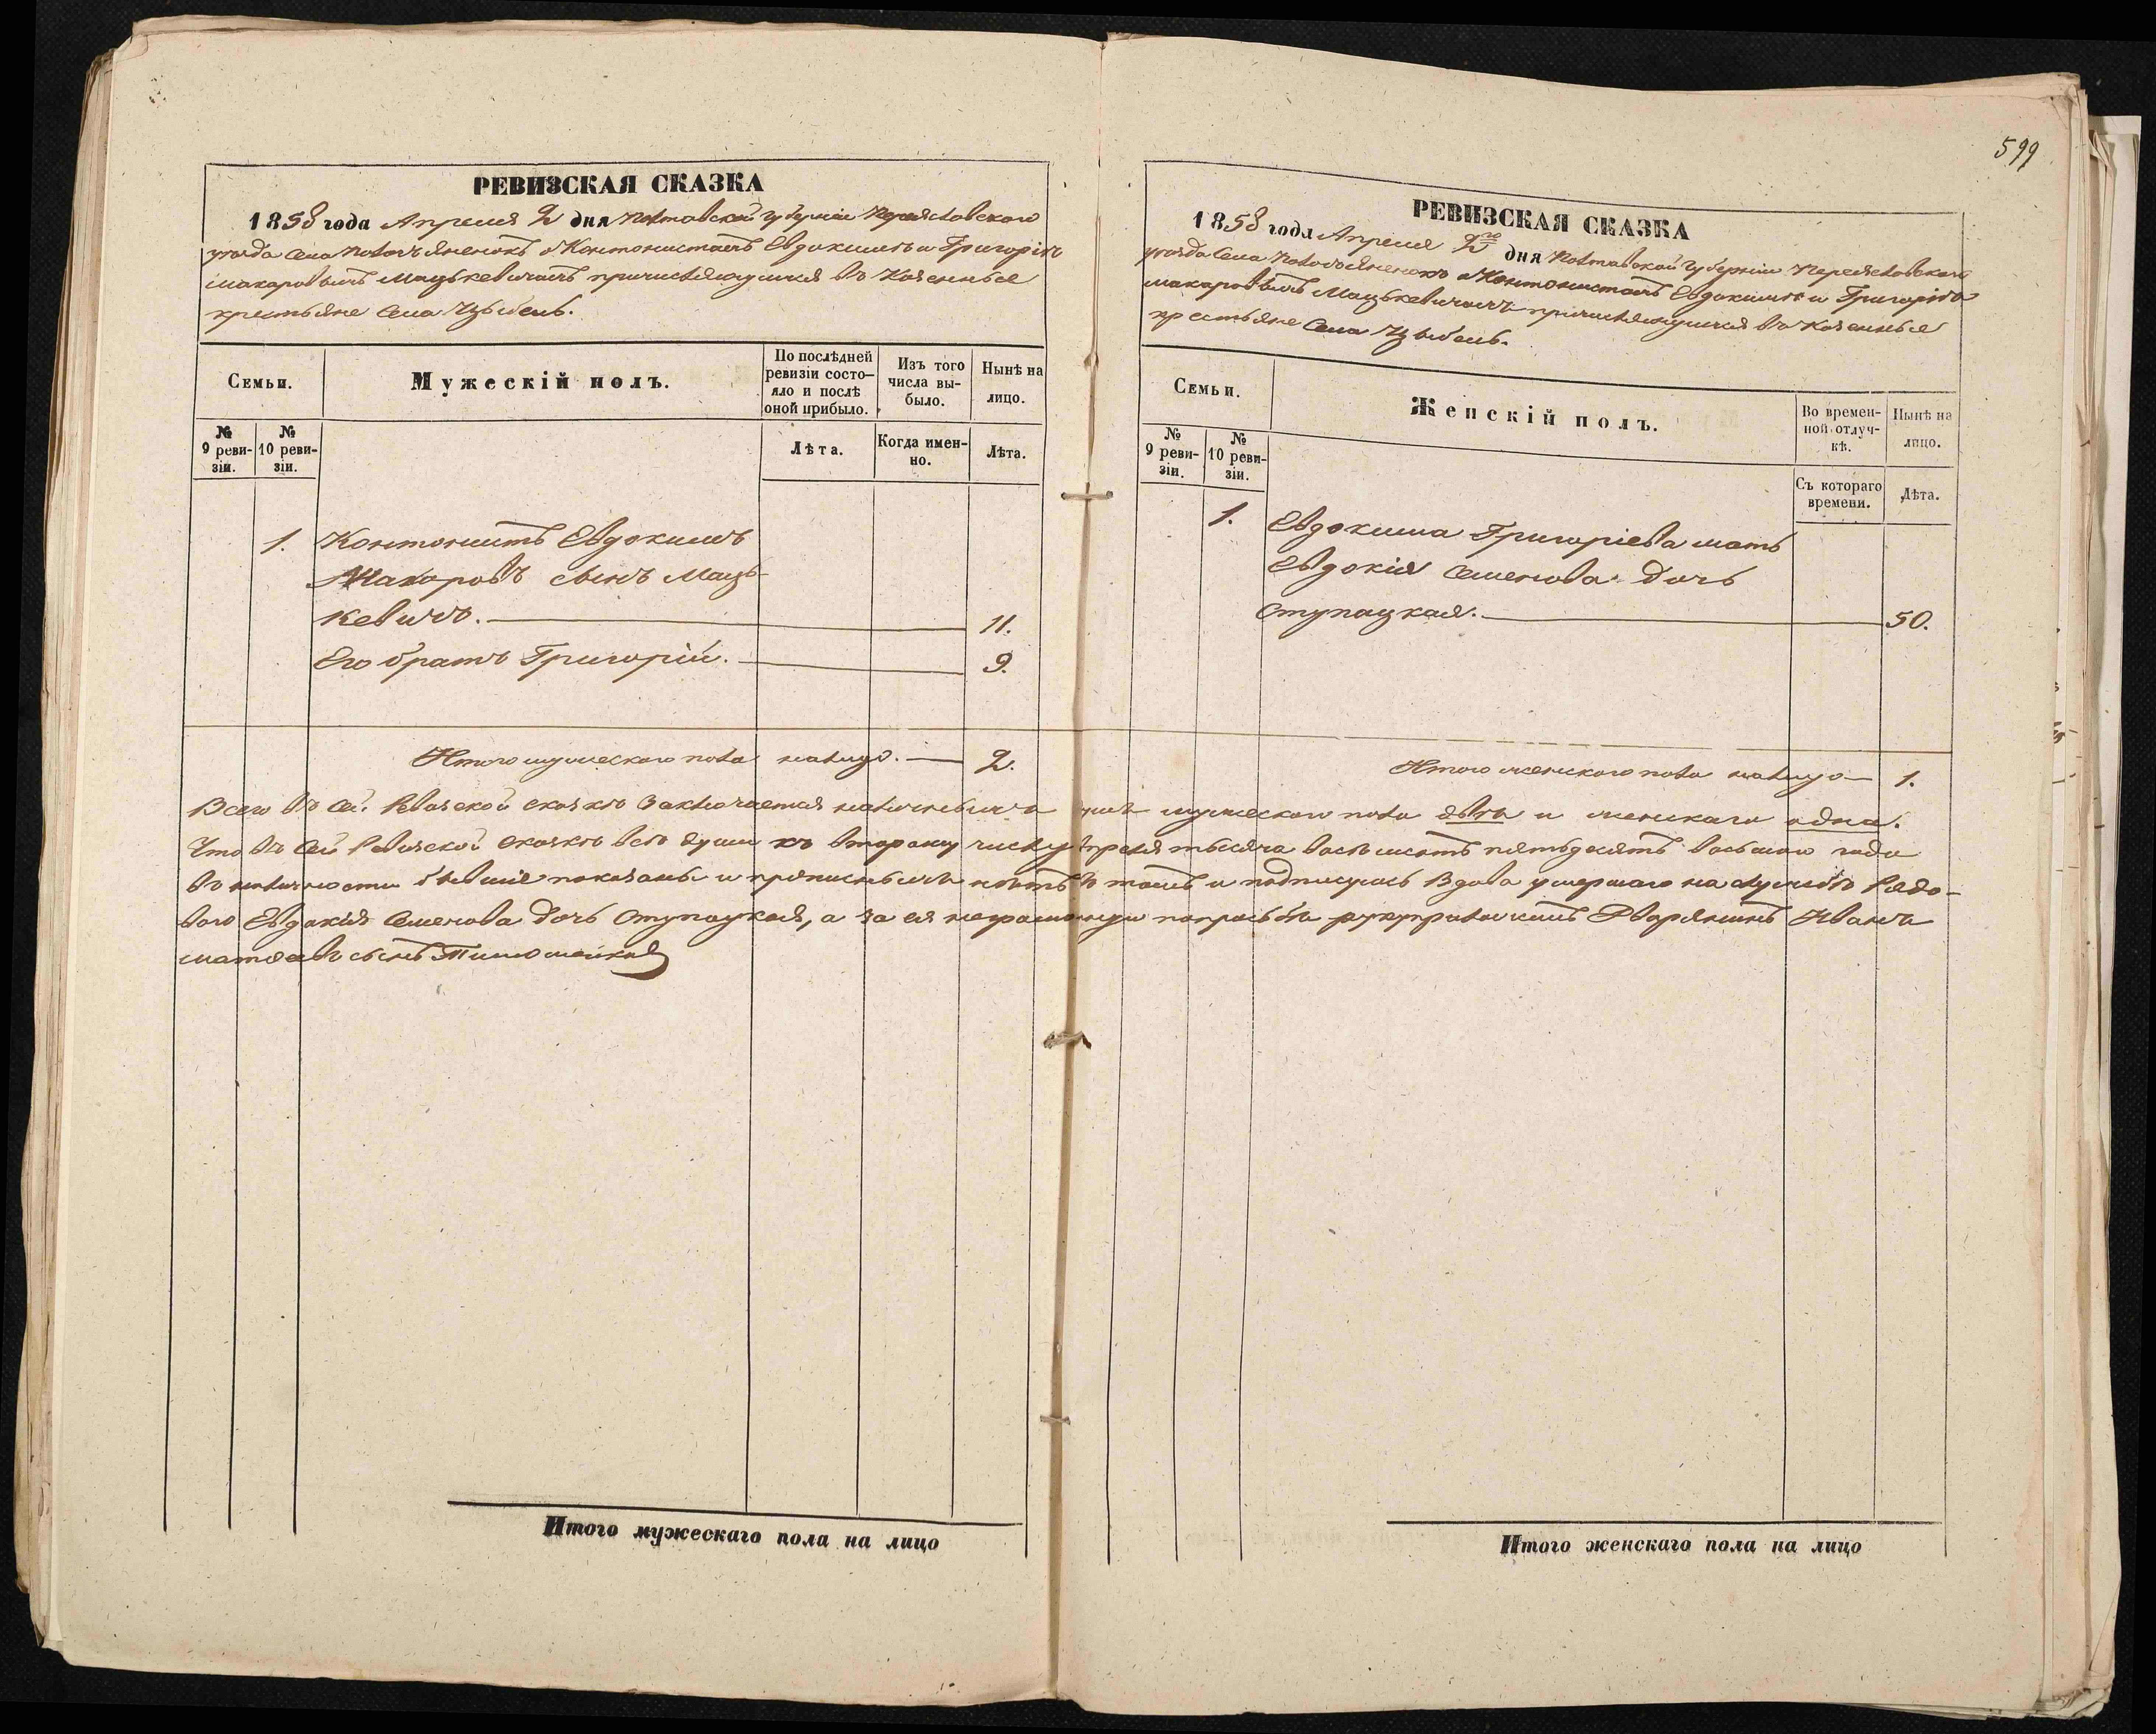 599
РЕВИЗСКАЯ СКАЗКА
1858 года Апреля 2 дня Полтавской губерніи Переяславского
уезда села о Кантонистахъ Евдокиме и Григоріе
Макаровыхъ Мацькевичахъ причисляющихся въ Казенные
крестьяне села Цыбель.
Семьи.
Мужескій полъ.
По послѣдней ревизіи состояло и послѣ оной прибыло.
Изъ того числа выбыло.
Нынѣ на лицо.
№ 9 ревизіи.
№ 10 ревизіи.
Лѣта.
Когда именно.
Лѣта.
1. Кантонистъ Евдокимъ
Макаровъ сынъ Маць-
кевичъ. 11.
Его братъ Григорій. 9.
Итого мужескаго пола налицо. 2.
РЕВИЗСКАЯ СКАЗКА
1858 года Апреля 2го дня Полтавской губерніи Переяславского
уезда села о Кантонистахъ Евдокиме и Григоріе
Макаровыхъ Мацькевичахъ причисляющихся въ Казенные
крестьяне села Цыбель.
Семьи.
Женскій полъ.
Во временной отлучкѣ.
Нынѣ на лицо.
№ 9 ревизіи.
№ 10 ревизіи.
Съ котораго времени.
Лѣта.
1. Евдокима Григоріева мать
Евдокія Семенова дочь
Ступацкая. 50.
Итого женского пола налицо 1.
Всего въ сей Ревизской сказке заключается наличныхъ душъ мужеского пола две и женскаго одна.
Что въ сей Ревизской сказке все души къ второму числу Апреля тысяча восемьсотъ пятьдесятъ восьмого года
въ наличности бывшіе показаны и прописныхъ нетъ въ томъ и подписуюсь Вдова умершаго на службе Рядо-
вого Евдокія Семенова дочь Ступацкая, а за ея неграмотную по просьбе Дворянинъ Иванъ
сынъ
Итого мужескаго пола на лицо
Итого женскаго пола на лицо